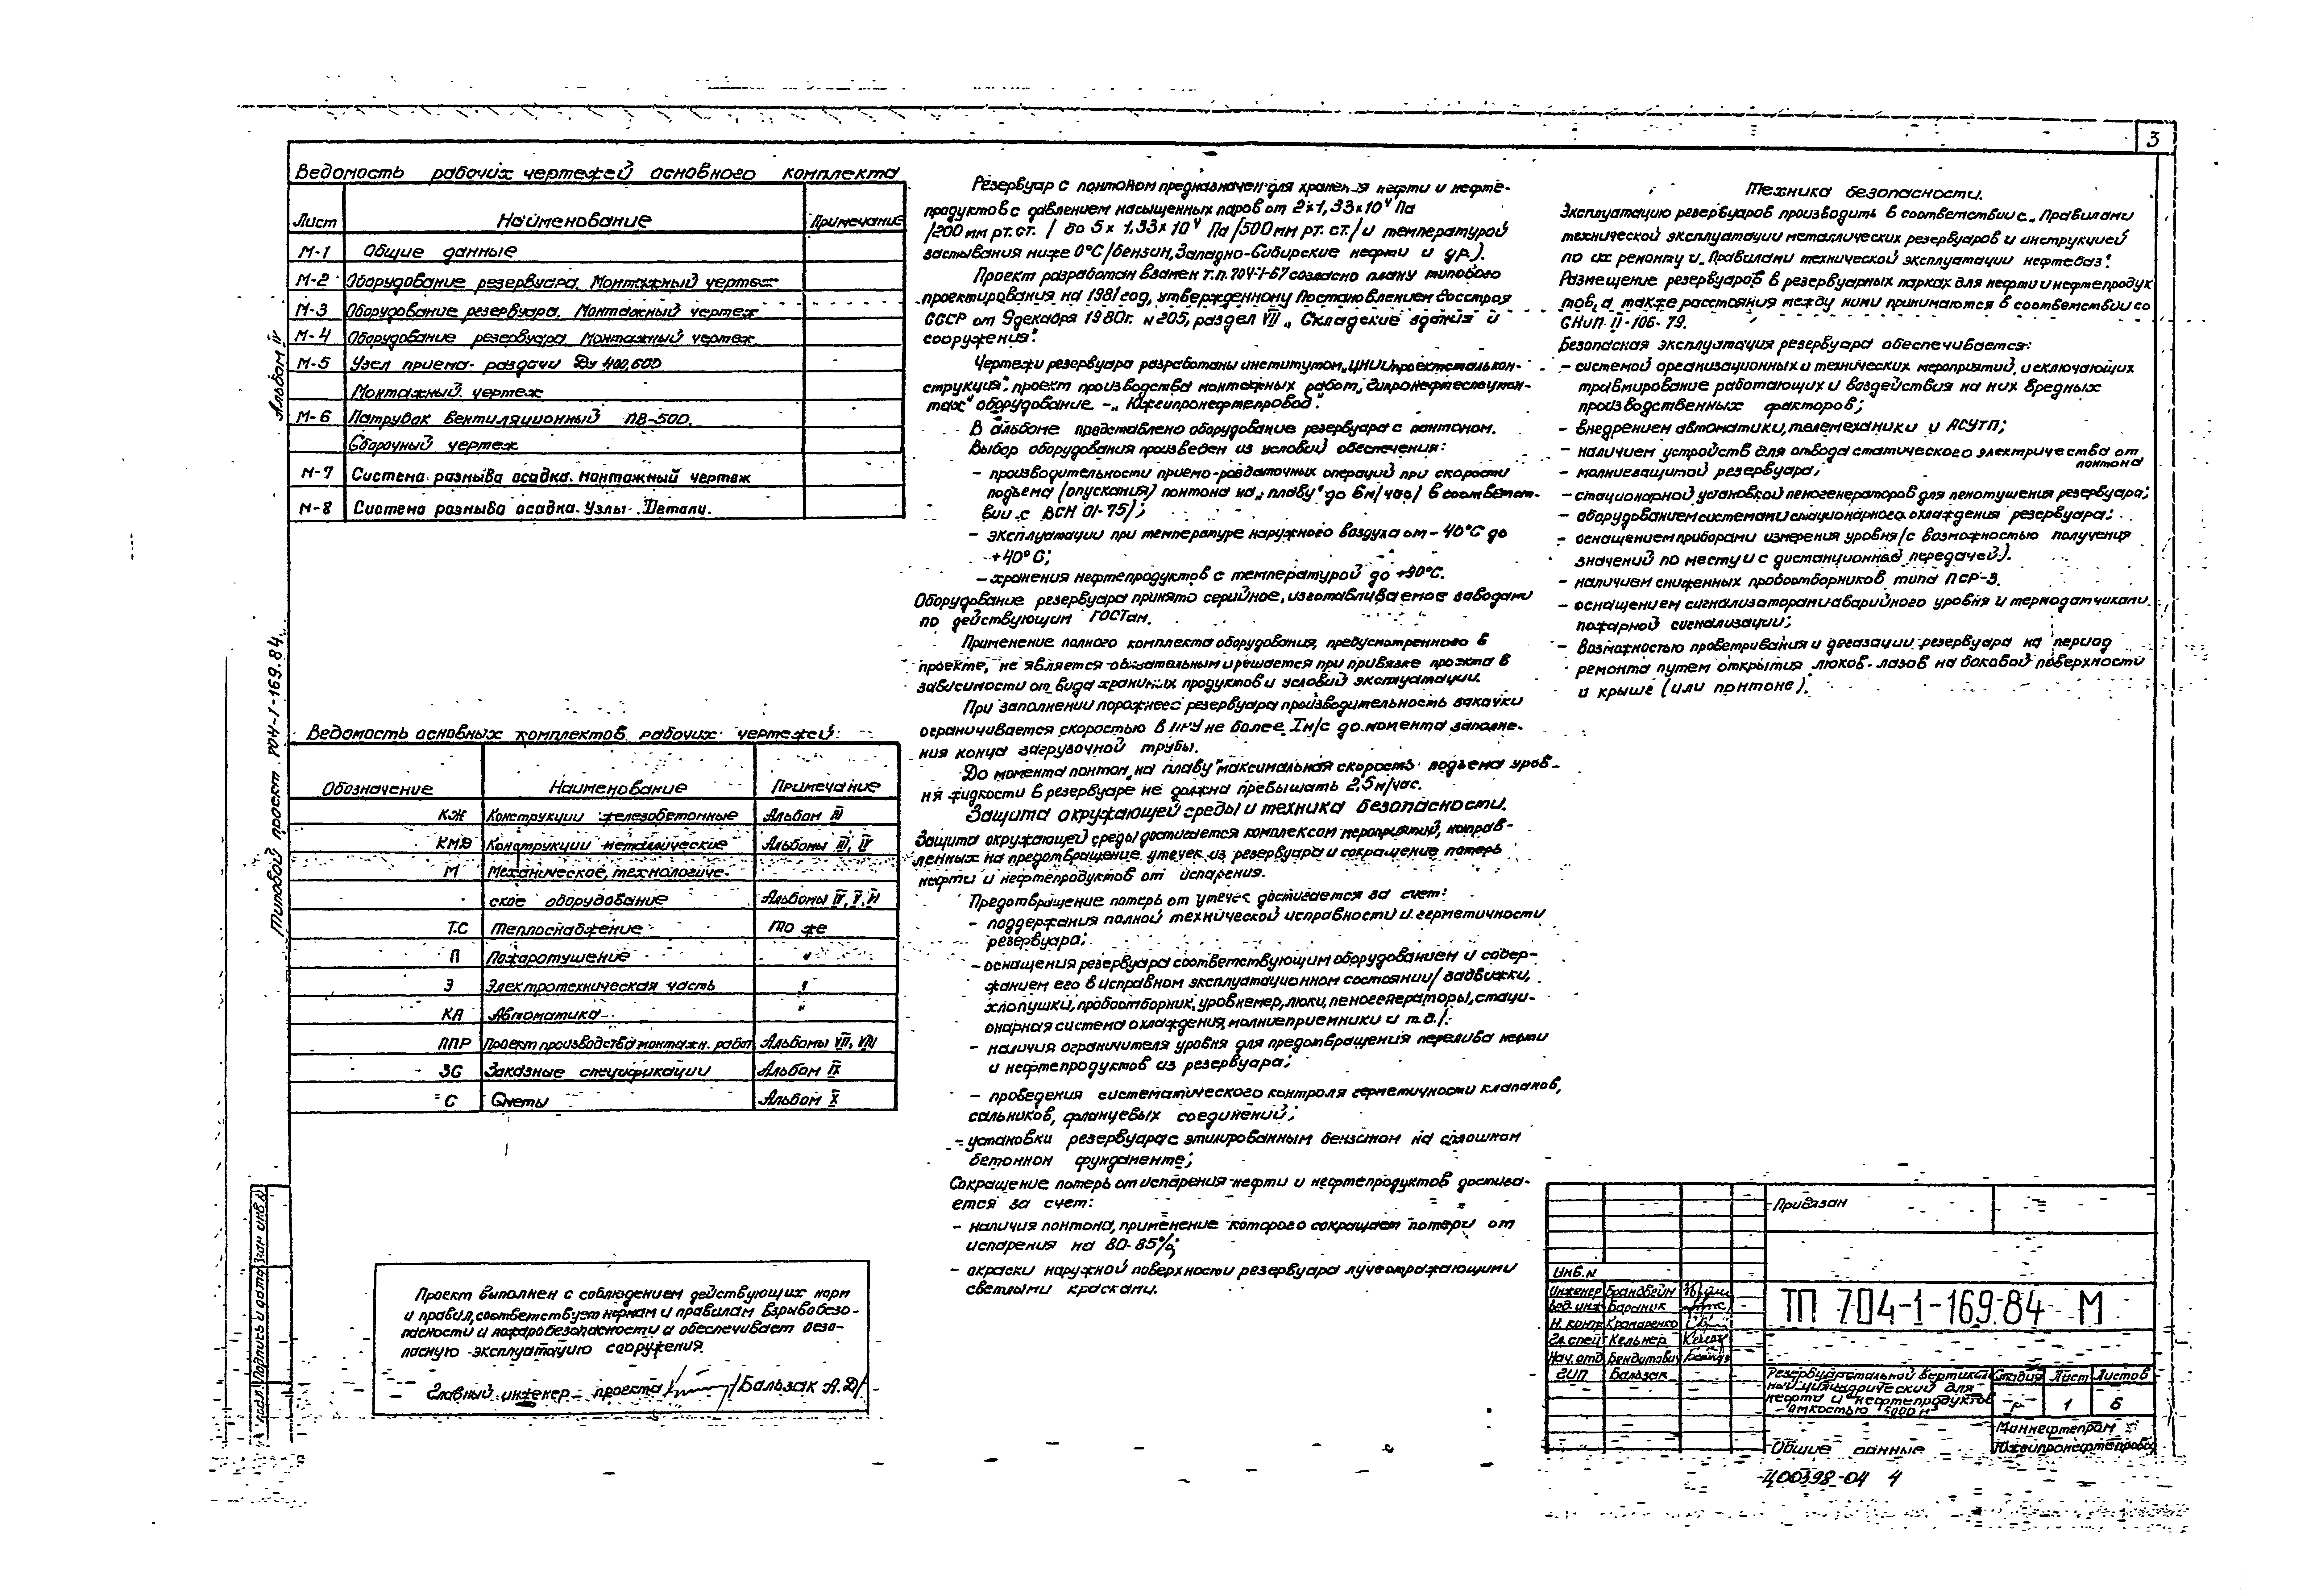 3
Альбом IV
Типовой проект 704-1-169.84.
Ведомость рабочих чертежей основного комплекта
Лист Наименование Примечание
М-1 Общие данные
М-2 Оборудование резервуара. Монтажный чертеж
М-3 Оборудование резервуара. Монтажный чертеж
М-4 Оборудование резервуара Монтажный чертеж
М-5 Узел приема-раздачи Ду 400,600
Монтажный чертеж
М-6 Патрубок вентиляционный ПВ-500.
Сборочный чертеж
М-7 Система размыва осадка. Монтажный чертеж
М-8 Система размыва осадка. Узлы. Детали.
Ведомость основных комплектов рабочих чертежей:
Обозначение Наименование Примечание
КЖ Конструкции железобетонные Альбом IV
КМД Конструкции металлические Альбомы III, IV
М Механическое, технологиче-
ское оборудование Альбомы IV, V, VI
ТС Теплоснабжение то же
П Пожаротушение "
Э Электротехническая часть "
КА Автоматика "
ППР Проект производства монтажн. работ Альбомы VII, VIII
ЗС Заказные спецификации Альбом IX
С Сметы Альбом X
Проект выполнен с соблюдением действующих норм
и правил, соответствует нормам и правилам взрывобезо-
пасности и пожаробезопасности и обеспечивает безо-
пасную эксплуатацию сооружения.
Главный инженер проекта /Бальзак А.Д/
Резервуар с понтоном предназначен для хранения нефти и нефте-
продуктов с давлением насыщенных паров от 2x1,33x10⁴ Па
/200 мм рт. ст. / до 5x 1,33x10⁴ Па /500 мм рт. ст./ и температурой
застывания ниже 0°С /бензин, Западно-Сибирские нефти и др.).
Проект разработан взамен т.п. 704-1-67 согласно плану типового
проектирования на 1981 год, утвержденному Постановлением Госстроя
СССР от 9 декабря 1980г. N 205, раздел VII „ Складские здания и
сооружения".
Чертежи резервуара разработаны институтом „ЦНИИпроектсталькон-
струкция", проект производства монтажных работ „Гипронефтеспецмон-
таж" оборудование -„ Южгипронефтепровод".
В альбоме представлено оборудование резервуара с понтоном.
Выбор оборудования произведен из условий обеспечения:
- производительности приемо-раздаточных операций при скорости
подъема (опускания) понтона на „ плаву" до 6м/час/ в соответст-
вии с ВСН 01-75/;
- эксплуатации при температуре наружного воздуха от - 40°С до
+40°С;
- хранения нефтепродуктов с температурой до +90°С.
Оборудование резервуара принято серийное, изготавливаемое заводами
по действующим ГОСТам.
Применение полного комплекта оборудования, предусмотренного в
проекте, не является обязательным и решается при привязке проекта в
зависимости от вида хранимых продуктов и условий эксплуатации.
При заполнении порожнего резервуара производительность закачки
ограничивается скоростью в ПРУ не более 1м/с до момента заполне-
ния конца загрузочной трубы.
До момента понтон „на плаву" максимальная скорость подъема уров-
ня жидкости в резервуаре не должна превышать 2,5 м/час.
Защита окружающей среды и техника безопасности.
Защита окружающей среды достигается комплексом мероприятий, направ-
ленных на предотвращение утечек из резервуара и сокращение потерь
нефти и нефтепродуктов от испарения.
Предотвращение потерь от утечек достигается за счет:
- поддержания полной технической исправности и герметичности
резервуара;
- оснащения резервуара соответствующим оборудованием и содер-
жанием его в исправном эксплуатационном состоянии/ задвижки,
хлопушки, пробоотборник, уровнемер, люки, пеногенераторы, стаци-
онарная система охлаждения, молниеприемники и т.д./.
- наличия ограничителя уровня для предотвращения перелива нефти
и нефтепродуктов из резервуара;
- проведения систематического контроля герметичности клапанов,
сальников, фланцевых соединений;
- установки резервуара с этилированным бензином на сплошном
бетонном фундаменте;
Сокращение потерь от испарения нефти и нефтепродуктов достига-
ется за счет:
- наличия понтона, применение которого сокращает потери от
испарения на 80-85%;
- окраски наружной поверхности резервуара лучеотражающими
светлыми красками.
Техника безопасности.
Эксплуатацию резервуаров производить в соответствии с „ Правилами
технической эксплуатации металлических резервуаров и инструкцией
по их ремонту и „Правилами технической эксплуатации нефтебаз".
Размещение резервуаров в резервуарных парках для нефти и нефтепродук
тов, а также расстояния между ними принимаются в соответствии со
СНиП II-106-79.
Безопасная эксплуатация резервуара обеспечивается:
- системой организационных и технических мероприятий, исключающих
травмирование работающих и воздействия на них вредных
производственных факторов;
- внедрением автоматики, телемеханики и АСУТП;
- наличием устройств для отвода статического электричества от
понтона
- молниезащитой резервуара;
- стационарной установкой пеногенераторов для пенотушения резервуара;
- оборудованием системами стационарного охлаждения резервуара;
- оснащением приборами измерения уровня/с возможностью получения
значений по месту и с дистанционной передачей).
- наличием сниженных пробоотборников типа ПСР-3.
- оснащением сигнализаторами аварийного уровня и термодатчиками
пожарной сигнализации;
- возможностью проветривания и дегазации резервуара на период
ремонта путем открытия люков-лазов на боковой поверхности
и крыше (или понтоне).
Привязан
Инв.N
Инженер Брандвейн
Вед. инж Бараник
Н. контр Крамаренко
Гл. спец Кельнер
Нач. отд Бендитович
ГИП Бальзак
ТП 704-1-169.84 М
Резервуар стальной вертикаль
ный цилиндрический для
нефти и нефтепродуктов
емкостью 5000 м³
Стадия Лист Листов
Р 1 6
Общие данные
Миннефтепром
Южгипронефтепровод
Ц00398-04 4
подл. Подпись и дата Взам инв.N